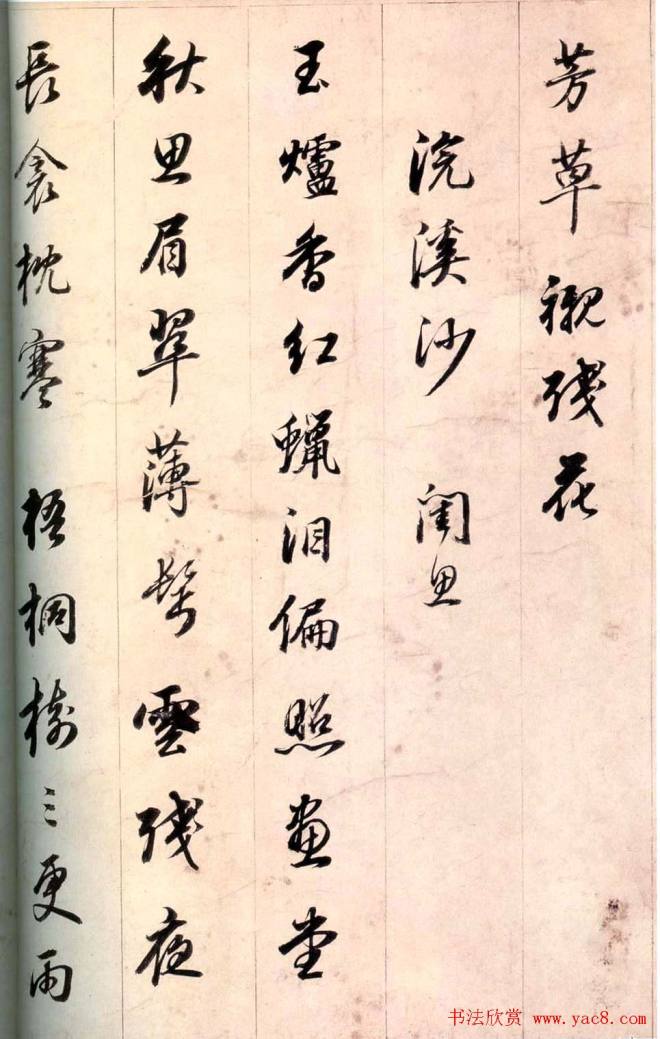 芳草襯残花
浣溪沙 閨思
玉爐香紅蠟泪偏照畫堂
秋思眉翠薄鬂雲残夜
長衾枕寒 梧桐樹三更雨
书法欣赏 www.yac8.com